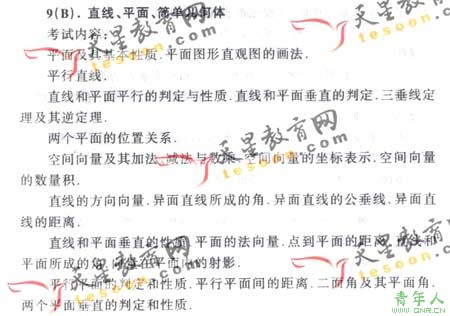 9(B). 直线、平面、简单几何体
考试内容:
平面及其基本性质. 平面图形直观图的画法.
平行直线.
直线和平面平行的判定与性质. 直线和平面垂直的判定. 三垂线定
理及其逆定理.
两个平面的位置关系.
空间向量及其加法、减法与数乘. 空间向量的坐标表示. 空间向量
的数量积.
直线的方向向量. 异面直线所成的角. 异面直线的公垂线. 异面直
线的距离.
直线和平面垂直的性质. 平面的法向量. 点到平面的距离. 直线和
平面所成的角. 向量在平面内的射影.
平行平面的判定和性质. 平行平面间的距离. 二面角及其平面角.
两个平面垂直的判定和性质.
天星教育网
tesoon.com
天星教育网
tesoon.com
天星教育网
tesoon.com
天星教育网
tesoon.com
青年人
www.QNR.CN